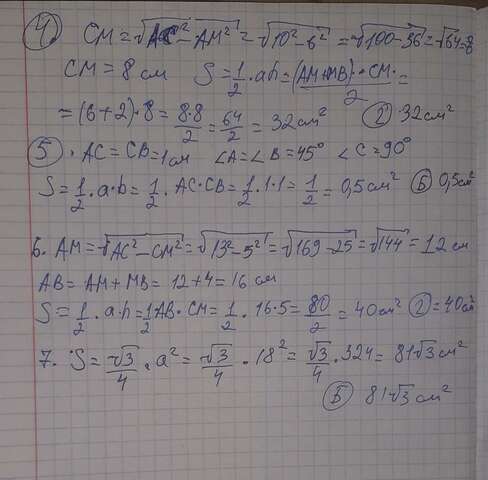 4) CM = √AC² - AM² = √10² - 6² = √100 - 36 = √64 = 8
CM = 8 см S = 1/2 · ah = (AM+MB) · CM · / 2 =
= (6+2) · 8 = 8·8/2 = 64/2 = 32 см² 2) 32 см²
5) · AC = CB = 1 см ∠A = ∠B = 45° ∠C = 90°
S = 1/2 · a · b = 1/2 · AC · CB = 1/2 · 1 · 1 = 1/2 = 0,5 см² Б 0,5 см²
6. AM = √AC² - CM² = √13² - 5² = √169 - 25 = √144 = 12 см
AB = AM + MB = 12 + 4 = 16 см
S = 1/2 · a · h = 1/2 AB · CM = 1/2 · 16 · 5 = 80/2 = 40 см² 2) = 40 см²
7. S = √3/4 · a² = √3/4 · 18² = √3/4 · 324 = 81√3 см²
Б 81√3 см²